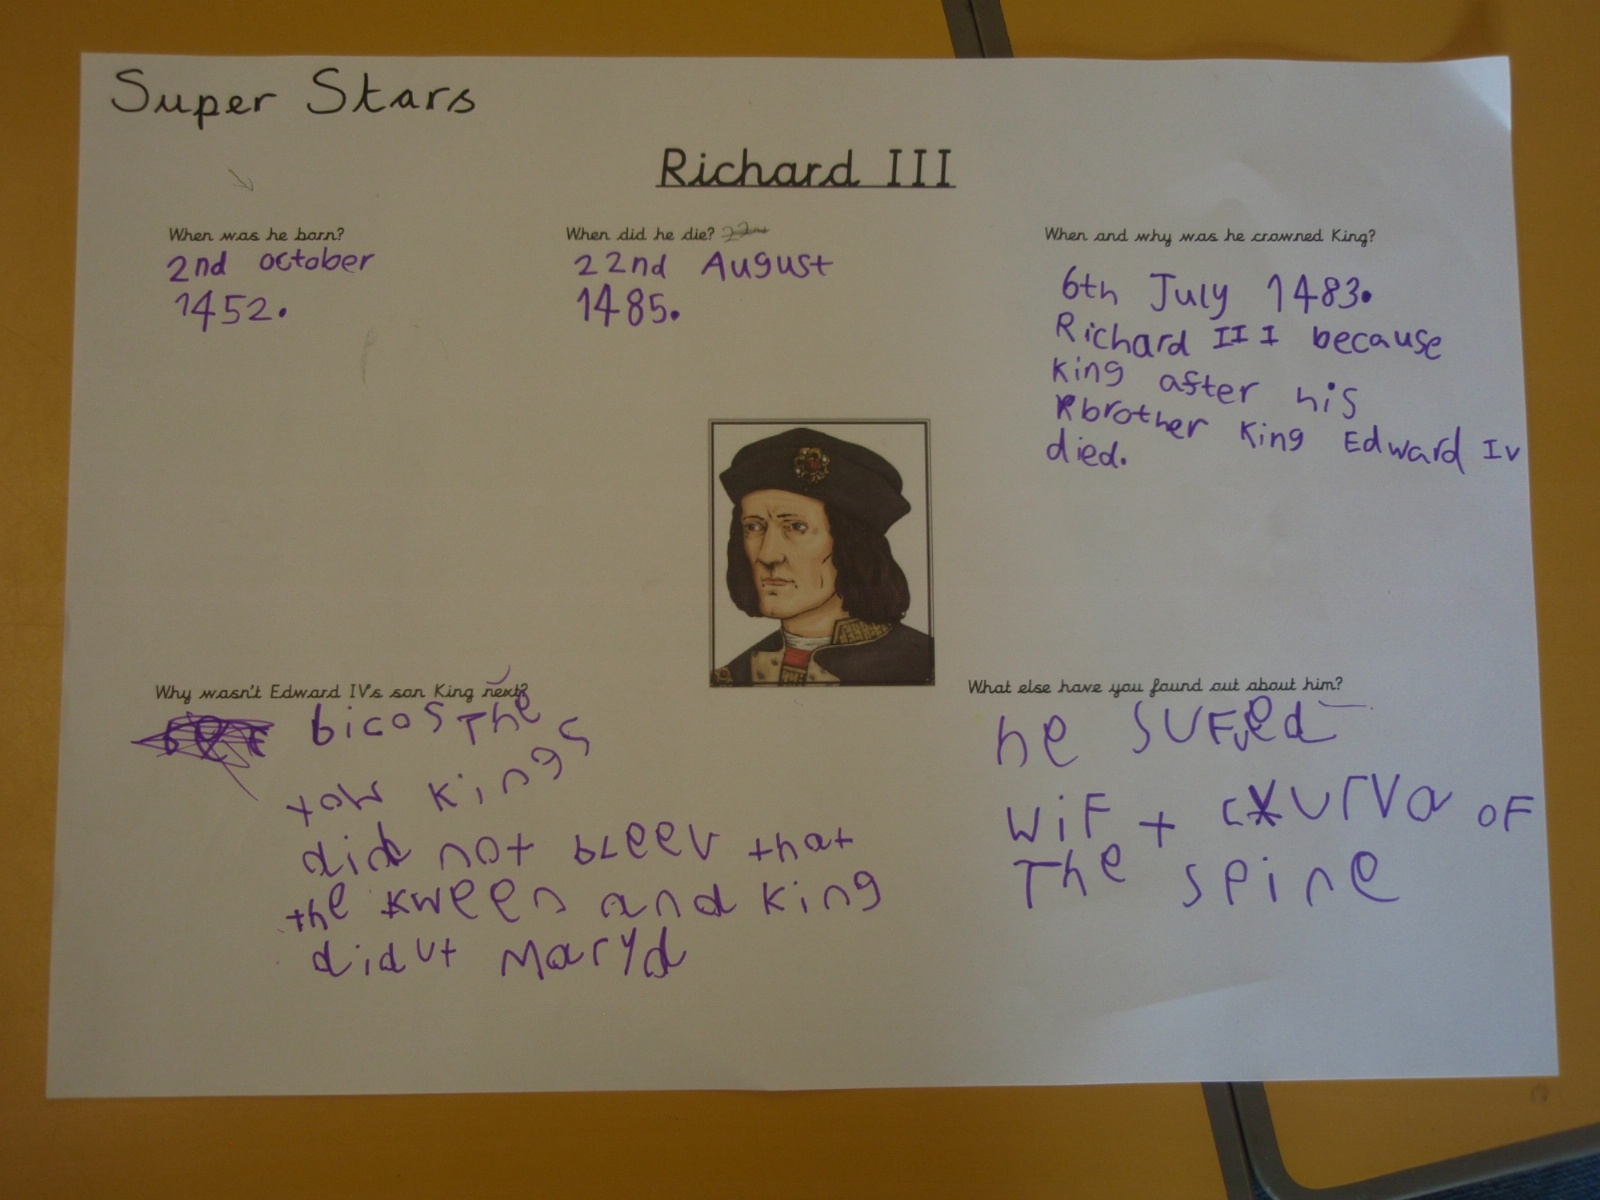 Super Stars
Richard III
When was he born?
2nd october
1452.
When did he die?
22nd August
1485.
When and why was he crowned King?
6th July 1483.
Richard III because
King after his
brother King Edward Iv
died.
Why wasn't Edward IV's son King next?
bicos The
tow kings
did not bleev that
the kween and king
didut Maryd
What else have you found out about him?
he SUFed
WiF + curva oF
The spine